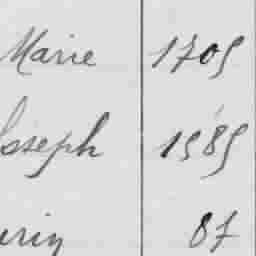 Marie 1705
Joseph 1585
87